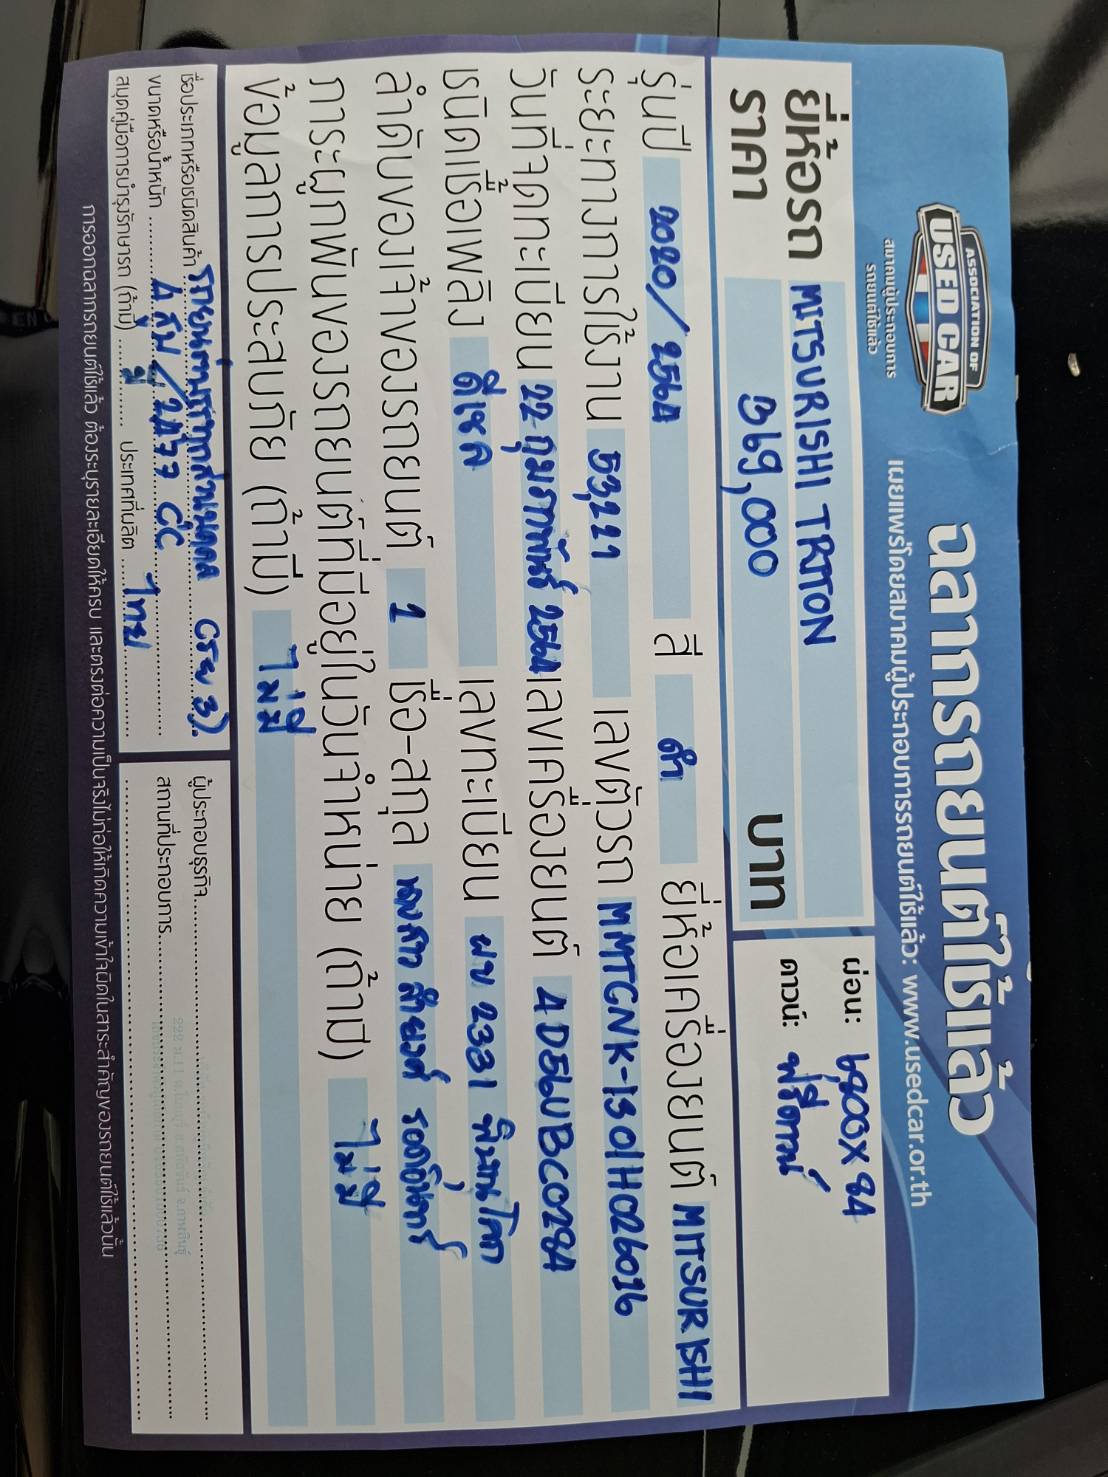 ASSOCIATION OF
USED CAR
สมาคมผู้ประกอบการ
รถยนต์ใช้แล้ว
ฉลากรถยนต์ใช้แล้ว
เผยแพร่โดยสมาคมผู้ประกอบการรถยนต์ใช้แล้ว: www.usedcar.or.th
ยี่ห้อรถ MITSURISHI TRITON
ราคา 369,000 บาท
ผ่อน: 6,900X84
ดาวน์: ฟรีดาวน์
รุ่นปี 2020/2564 สี ดำ ยี่ห้อเครื่องยนต์ MITSURISHI
ระยะทางการใช้งาน 53,221 เลขตัวรถ MMTCNK-1301H026016
วันที่จดทะเบียน 22 กุมภาพันธ์ 2564 เลขเครื่องยนต์ 4D56UBC0284
ชนิดเชื้อเพลิง ดีเซล เลขทะเบียน ผข 2331 พิษณุโลก
ลำดับของเจ้าของรถยนต์ 1 ชื่อ-สกุล
ภาระผูกพันของรถยนต์ที่มีอยู่ในวันจำหน่าย (ถ้ามี) ไม่มี
ข้อมูลการประสบภัย (ถ้ามี) ไม่มี
ชื่อประเภทหรือชนิดสินค้า รถยนต์บรรทุกส่วนบุคคล (รย 3).
ขนาดหรือน้ำหนัก 4 สูบ/2477 CC
สมุดคู่มือการบำรุงรักษารถ (ถ้ามี) มี ประเทศที่ผลิต ไทย
ผู้ประกอบธุรกิจ
สถานที่ประกอบการ
การออกฉลากรถยนต์ใช้แล้ว ต้องระบุรายละเอียดให้ครบ และตรงต่อความเป็นจริงไม่ก่อให้เกิดความเข้าใจผิดในสาระสำคัญของรถยนต์ใช้แล้วนั้น